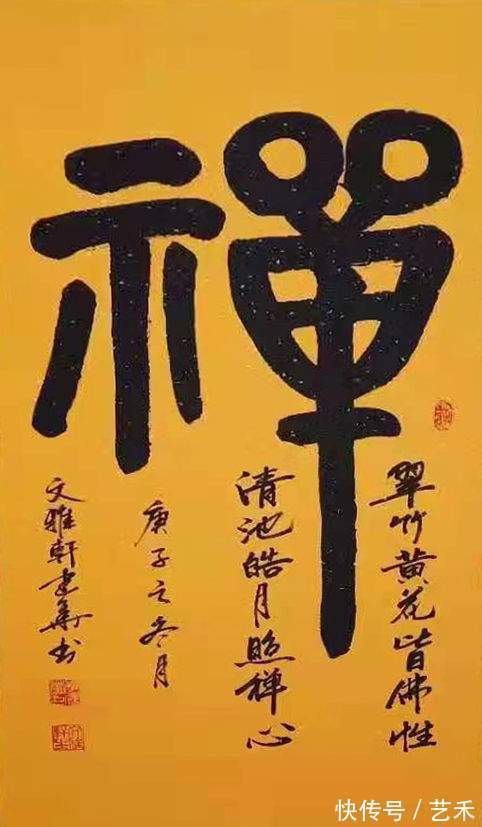 禪
翠竹黄花皆佛性
清池皓月照禅心
庚子之冬月
文雅軒建華书
快传号 / 艺禾